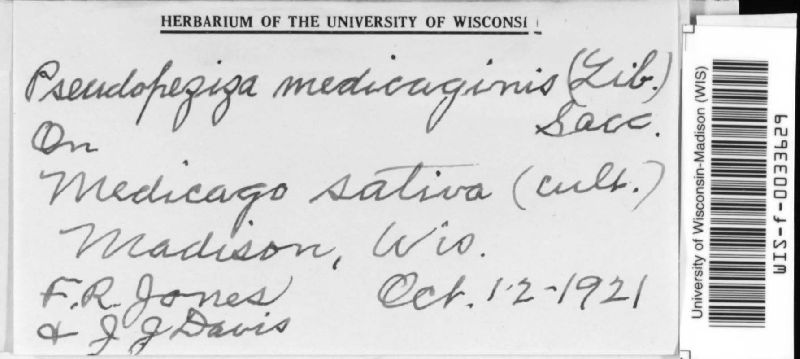 HERBARIUM OF THE UNIVERSITY OF WISCONSI
Pseudopeziza medicaginis (Lib.)
Sacc.
On
Medicago sativa (cult.)
Madison, Wis.
F.R. Jones Oct. 12-1921
& J J Davis
University of Wisconsin-Madison (WIS)
WIS-f-0033629